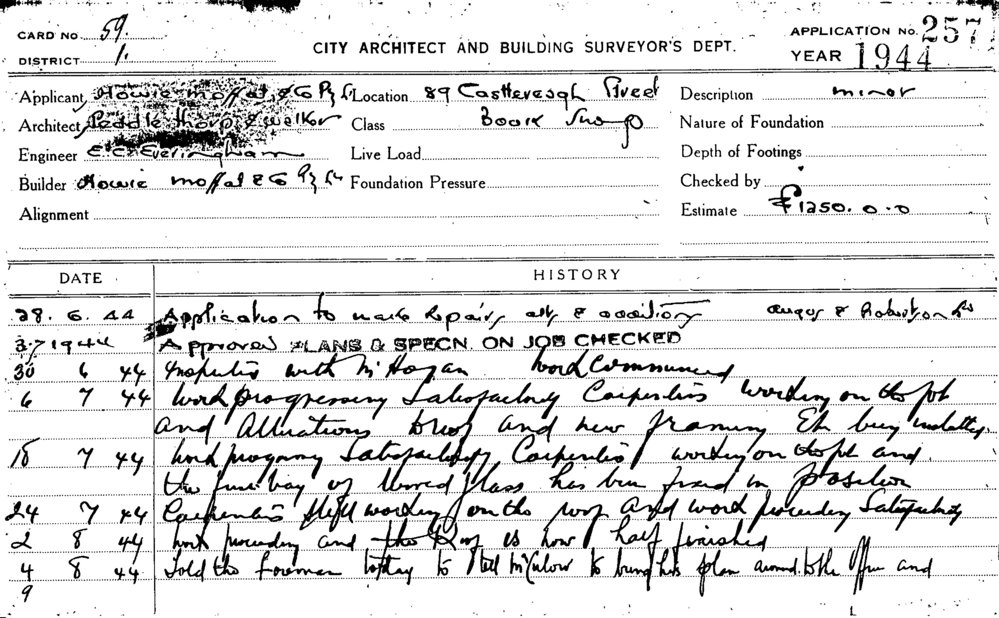 CARD NO. 59.
DISTRICT 1.
CITY ARCHITECT AND BUILDING SURVEYOR'S DEPT.
APPLICATION No. 257
YEAR 1944
Applicant Howie Moffat & Co Pty Ld Location 89 Castlereagh Street Description minor
Architect Peddle Thorp & Walker Class Book Shop Nature of Foundation
Engineer E. C. Everingham Live Load Depth of Footings
Builder Howie Moffat & Co Pty Ld Foundation Pressure Checked by
Alignment Estimate £1250.0.0
DATE HISTORY
28. 6. 44 Application to make repairs, alts & additions Angus & Robertson Ld
3-7 1944 Approved PLANS & SPECN. ON JOB CHECKED
30 6 44 Inspection with Mr Hogan work commenced
6 7 44 Work progressing Satisfactory Carpenters working on the job
and Alterations to roof and new framing Etc being
18 7 44 Work progressing Satisfactory Carpenters working on the job and
the bay of Glass has been fixed in position
24 7 44 Carpenters Still working on the roof and work proceeding Satisfactory
2 8 44 Work proceeding and the Roof is now half finished
4 8 44 Told the foreman today to tell to bring his plan around to the Office and
9